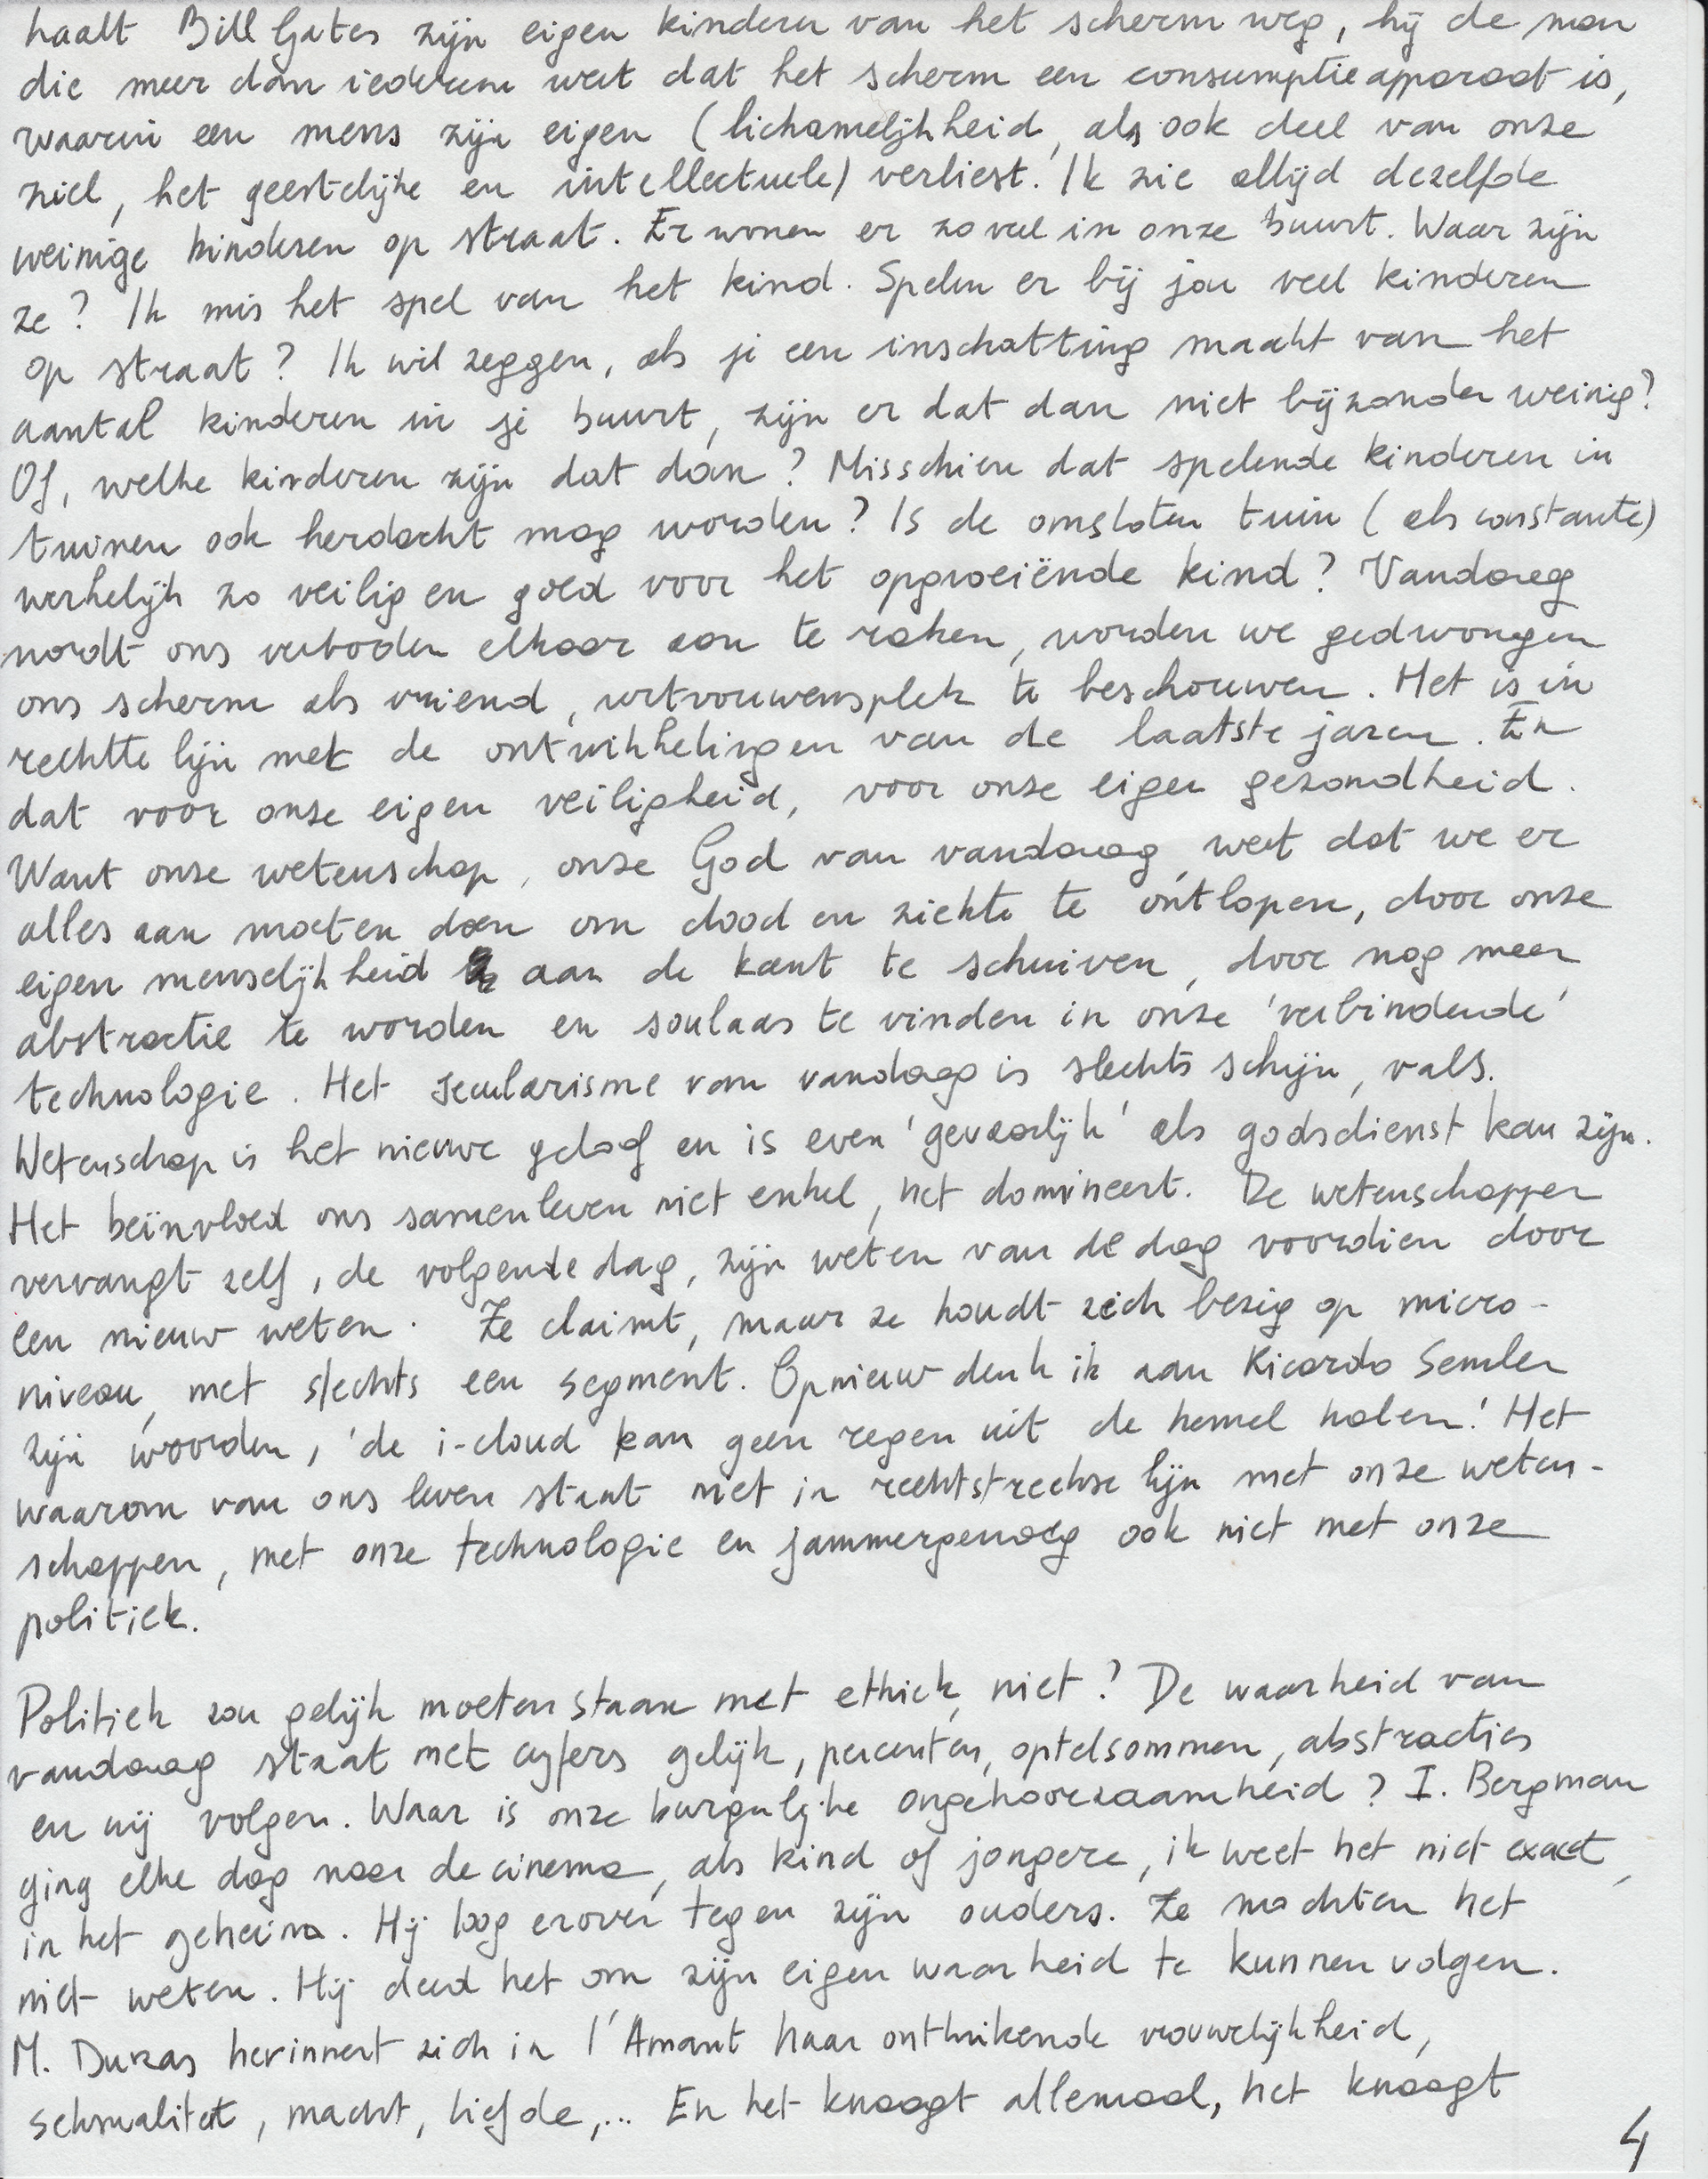 haalt Bill Gates zijn eigen kinderen van het scherm weg, hij de man
die meer dan iedereen weet dat het scherm een consumptieapparaat is,
waarin een mens zijn eigen (lichamelijkheid, als ook deel van onze
ziel, het geestelijke en intellectuele) verliest. Ik zie altijd dezelfde
weinige kinderen op straat. Er wonen er zoveel in onze buurt. Waar zijn
ze? Ik mis het spel van het kind. Spelen er bij jou veel kinderen
op straat? Ik wil zeggen, als je een inschatting maakt van het
aantal kinderen in je buurt, zijn er dat dan niet bijzonder weinig?
Of, welke kinderen zijn dat dan? Misschien dat spelende kinderen in
tuinen ook herdacht mag worden? Is de omsloten tuin (als constante)
werkelijk zo veilig en goed voor het opgroeiënde kind? Vandaag
wordt ons verboden elkaar aan te raken, worden we gedwongen
ons scherm als vriend, uitvouwensplek te beschouwen. Het is in
rechtte lijn met de ontwikkelingen van de laatste jaren. En
dat voor onze eigen veiligheid, voor onze eigen gezondheid.
Want onze wetenschap, onze God van vandaag, weet dat we er
alles aan moeten doen om dood en ziekte te ontlopen, door onze
eigen menselijkheid aan de kant te schuiven, door nog meer
abstractie te worden en soulaas te vinden in onze 'verbindende'
technologie. Het secularisme van vandaag is slechts schijn, vals.
Wetenschap is het nieuwe geloof en is even 'gevaarlijk' als godsdienst kan zijn.
Het beïnvloed ons samenleven niet enkel, het domineert. De wetenschapper
vervangt zelf, de volgende dag, zijn weten van de dag voordien door
een nieuw weten. Ze claimt, maar ze houdt zich bezig op micro-
niveau, met slechts een segment. Opnieuw denk ik aan Ricardo Semler
zijn woorden, 'de i-cloud kan geen regen uit de hemel halen.' Het
waarom van ons leven staat niet in rechtstreekse lijn met onze weten-
schappen, met onze technologie en jammergenoeg ook niet met onze
politiek.
Politiek zou gelijk moeten staan met ethiek, niet? De waarheid van
vandaag staat met cijfers gelijk, percenten, optelsommen, abstracties
en wij volgen. Waar is onze burgelijke ongehoorzaamheid? I. Bergman
ging elke dag naar de cinema, als kind of jongere, ik weet het niet exact,
in het geheim. Hij loog erover tegen zijn ouders. Ze mochten het
niet weten. Hij deed het om zijn eigen waarheid te kunnen volgen.
M. Duras herinnert zich in l'Amant haar ontluikende vrouwelijkheid,
seksualiteit, macht, liefde,... En het knaagt allemaal, het knaagt
4